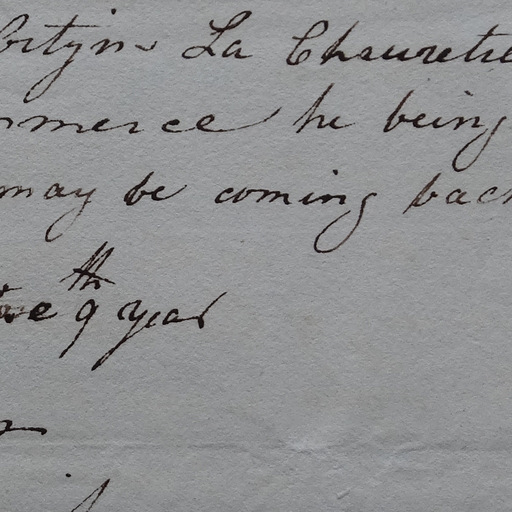 La Chauretie
mmerce he being
may be coming back
the 9th year